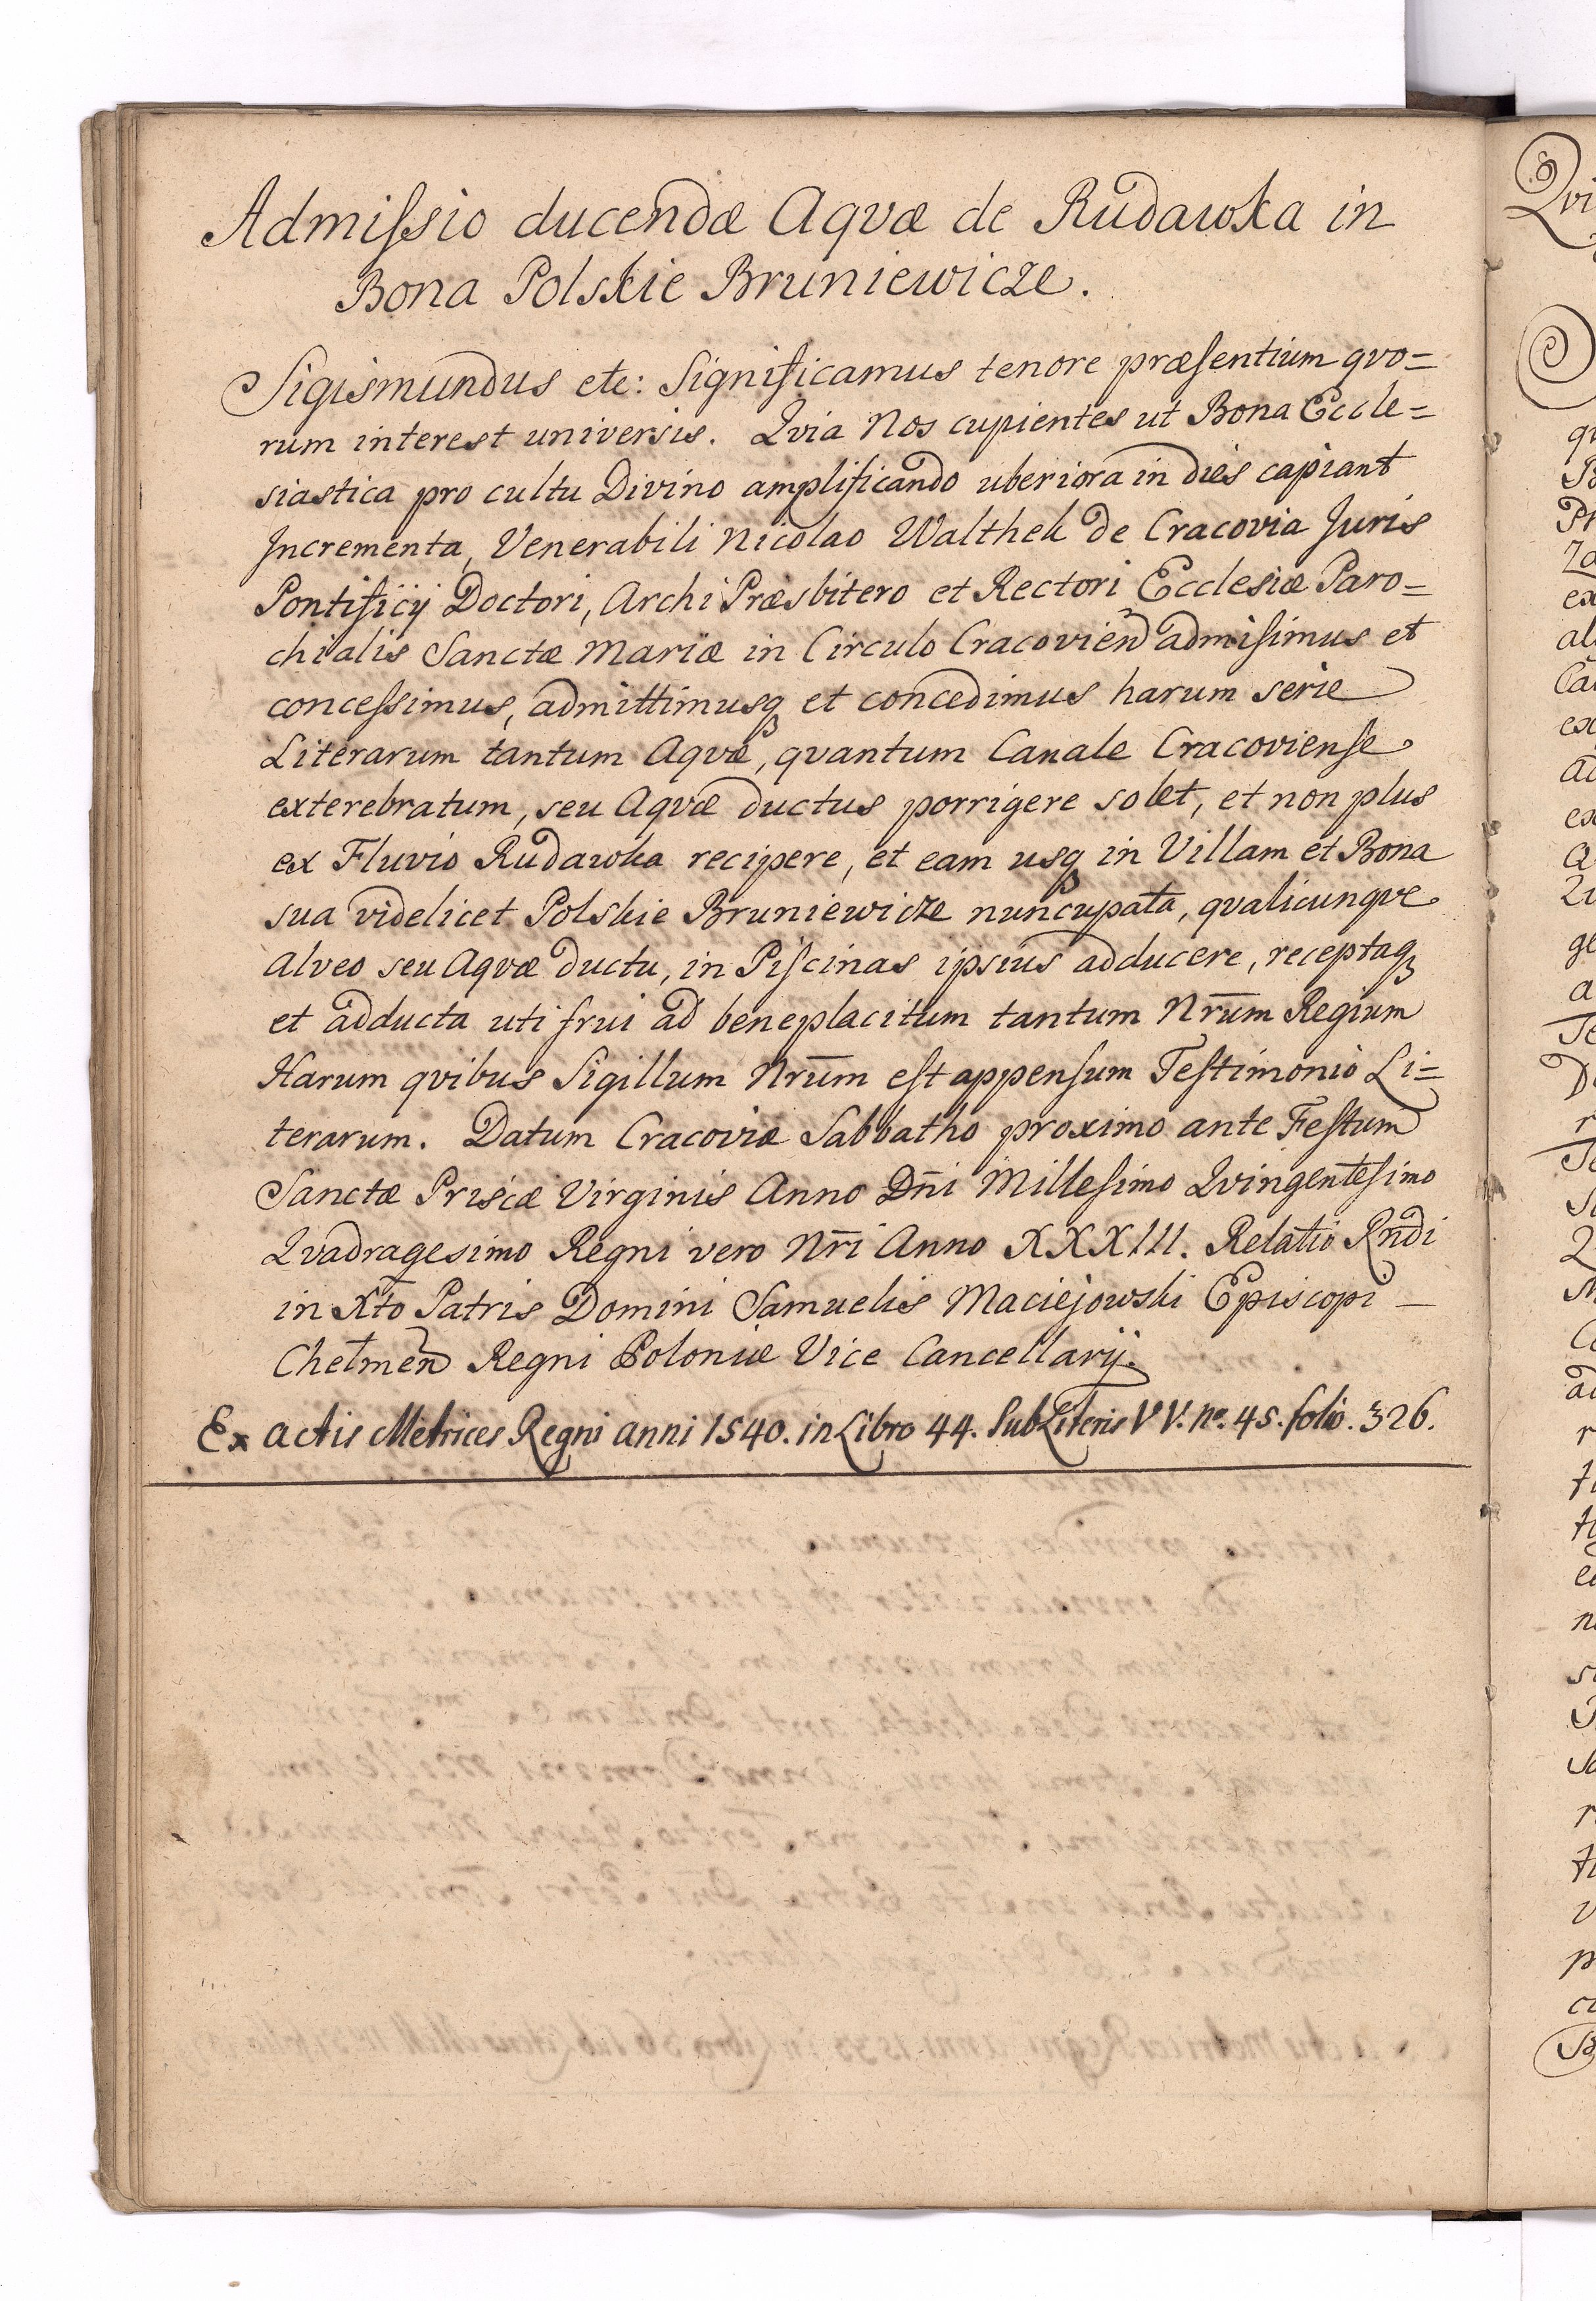 Admiſsio ducendæ Aqvæ de Rudawka in
Bona Polskie Bruniewicze.
Sigismundus etc: Significamus tenore præſentium qvo=
rum interest universis. Qvia Nos cupientes ut Bona Eccle=
siastica pro cultu Divino amplificando uberiora in dies capiant
Incrementa, Venerabili Nicolao Walthek de Cracovia Juris
Pontificij Doctori, Archi Præsbitero et Rectori Ecclesiæ Paro=
chialis Sanctæ Mariæ in Circulo Cracovień admiſimus et
conceſsimus, admittimusq; et concedimus harum serie
Literarum tantum Aqvæ, qvantum Canale Cracovienſe
exterebratum, seu Aqvæ ductus porrigere solet, et non plus
ex Fluvio Rudawka recipere, et eam usq; in Villam et Bona
sua videlicet Polskie Bruniewicze nuncupata, qvalicunqve
alveo seu Aqvæ ductu, in Piſcinas ipsius adducere, receptaq;
et adducta uti frui ad beneplacitum tantum Nrūm Regium
Harum qvibus Sigillum Nrūm eſt appenſum Teſtimonio Li=
terarum. Datum Cracoviæ Sabbatho proximo ante Feſtum
Sanctæ Priscæ Virginis Anno Dn̄i Milleſimo Qvingenteſimo
Qvadragesimo Regni vero Nr̄i Anno XXXIII. Relatio Rn̄di
in Xto Patris Domini Samuelis Maciejowski Episcopi –
Chełmeń Regni Poloniæ Vice Cancellarij.
Ex actis Metrices Regni anni 1540. in Libro 44. Sub Literis VV. No. 45. folio. 326.